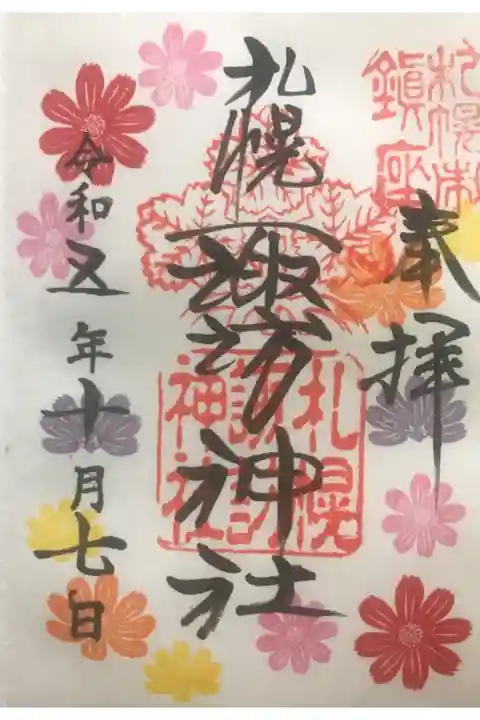 札幌市
鎮座
奉拝
札幌
諏訪神社
札幌
諏訪
神社
令和五年十月七日